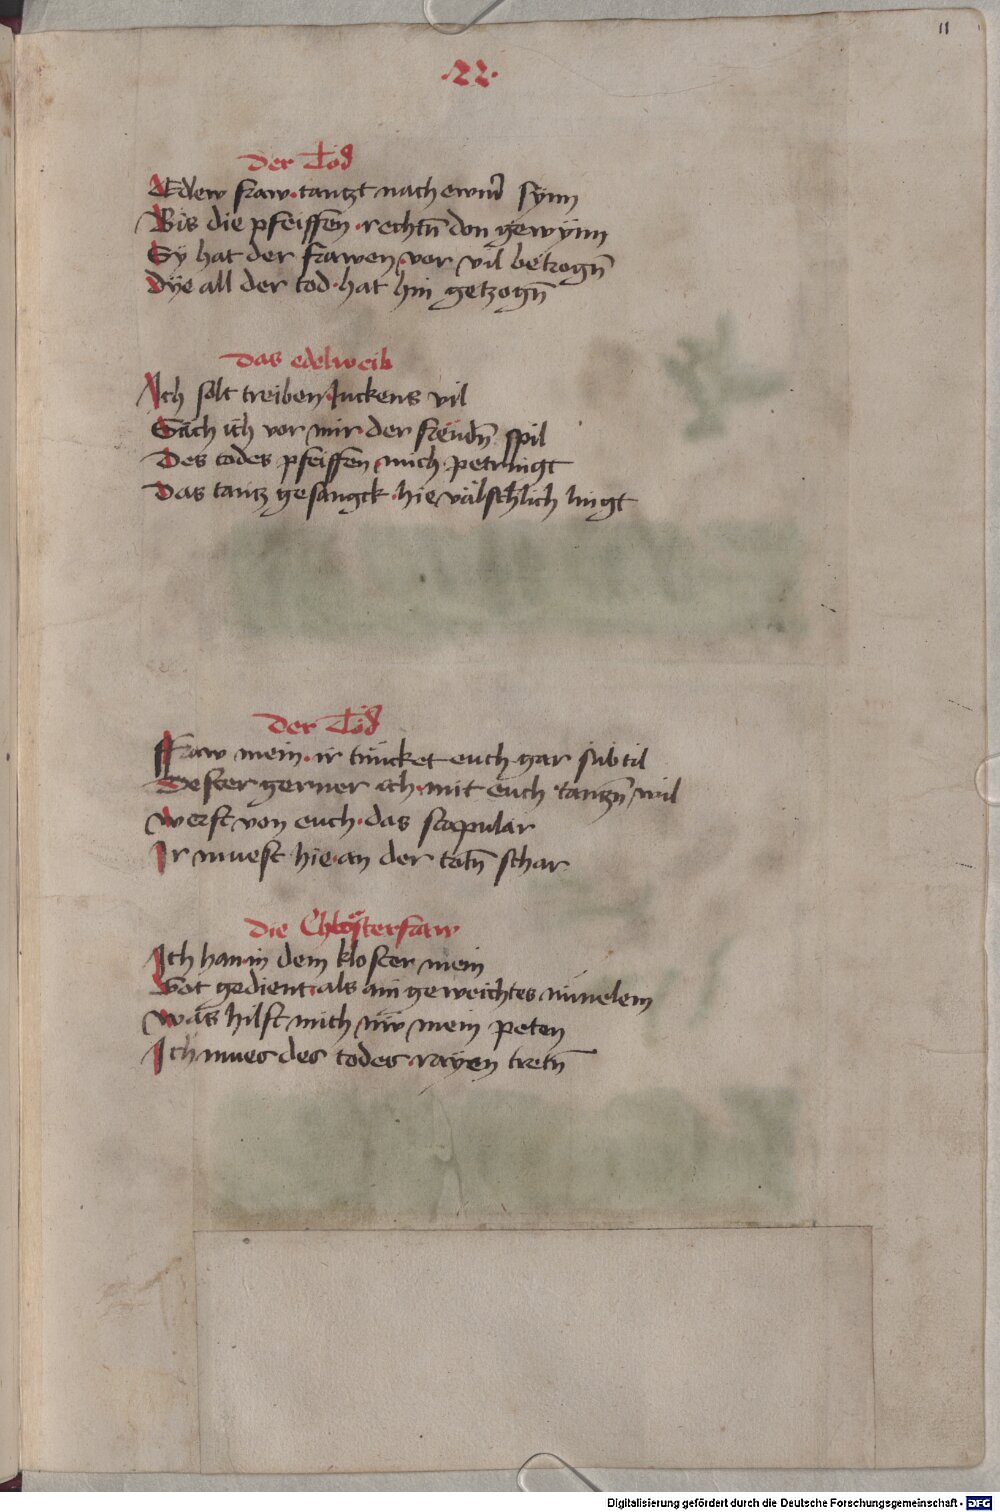 11
·22·
Der Tod
Edlew fraw · tantzt nach ewrm̄ synn
Bis die pfeiffen · rechtn̄ don gewynn
Sy hat der frawen · vor vil betrogn̄
Dye all der tod · hat hin getzogn̄
Das edelweib
Ich solt treiben Juckens vil
Säch ich vor mir · der freudn̄ spil
Des todes pfeiffen · mich petringt
Das tantz gesangck · hie välschlich lingt
Der Tod
Fraw mein · ir tuncket euch gar subtil
Dester gerner ich · mit euch tanzn̄ wil
Werft von euch · das scapular
Ir muest hie · an der totn̄ schar
Die Chlosterfraw
Ich han · in dem kloster mein
Got gedient · als ain geweichtes nünelein
Was hilft mich nw mein peten
Ich mues des todes · rayen tretn̄
Digitalisierung gefördert durch die Deutsche Forschungsgemeinschaft - DFG